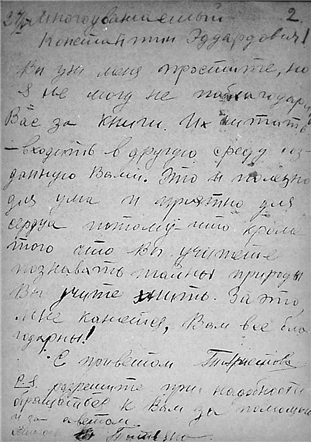 Многоуважаемый 2.
Константин Эдуардович!
Вы уж меня простите, но
я не могу не поблагодарить
Вас за книги. Их читать
– входить в другую среду соз-
данную Вами. Это и полезно
для ума и приятно для
сердца потому что кроме
того что Вы учите
познавать тайны природы
Вы учите жить. За это
мне кажется, Вам все бла-
годарны!
С приветом
P.S. разрешите при надобности
обращаться к Вам за помощью
и за советом.